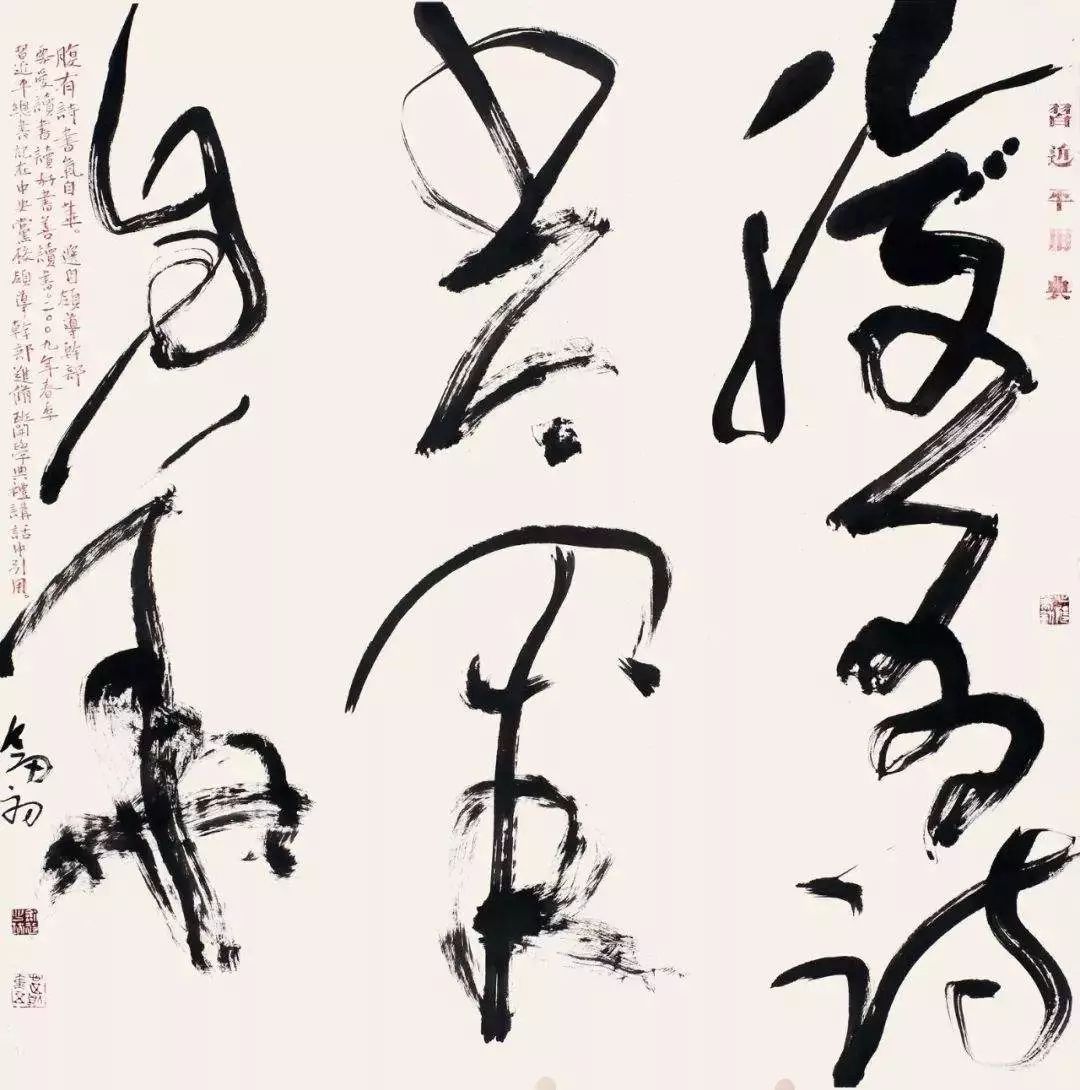 習近平用典
腹有詩
书氣
自華
腹有詩書氣自華。選自領導幹部
要愛讀書讀好書善讀書。二〇〇九年春季
習近平總書記在中央黨校領導幹部進修班開學典禮講話中引用。